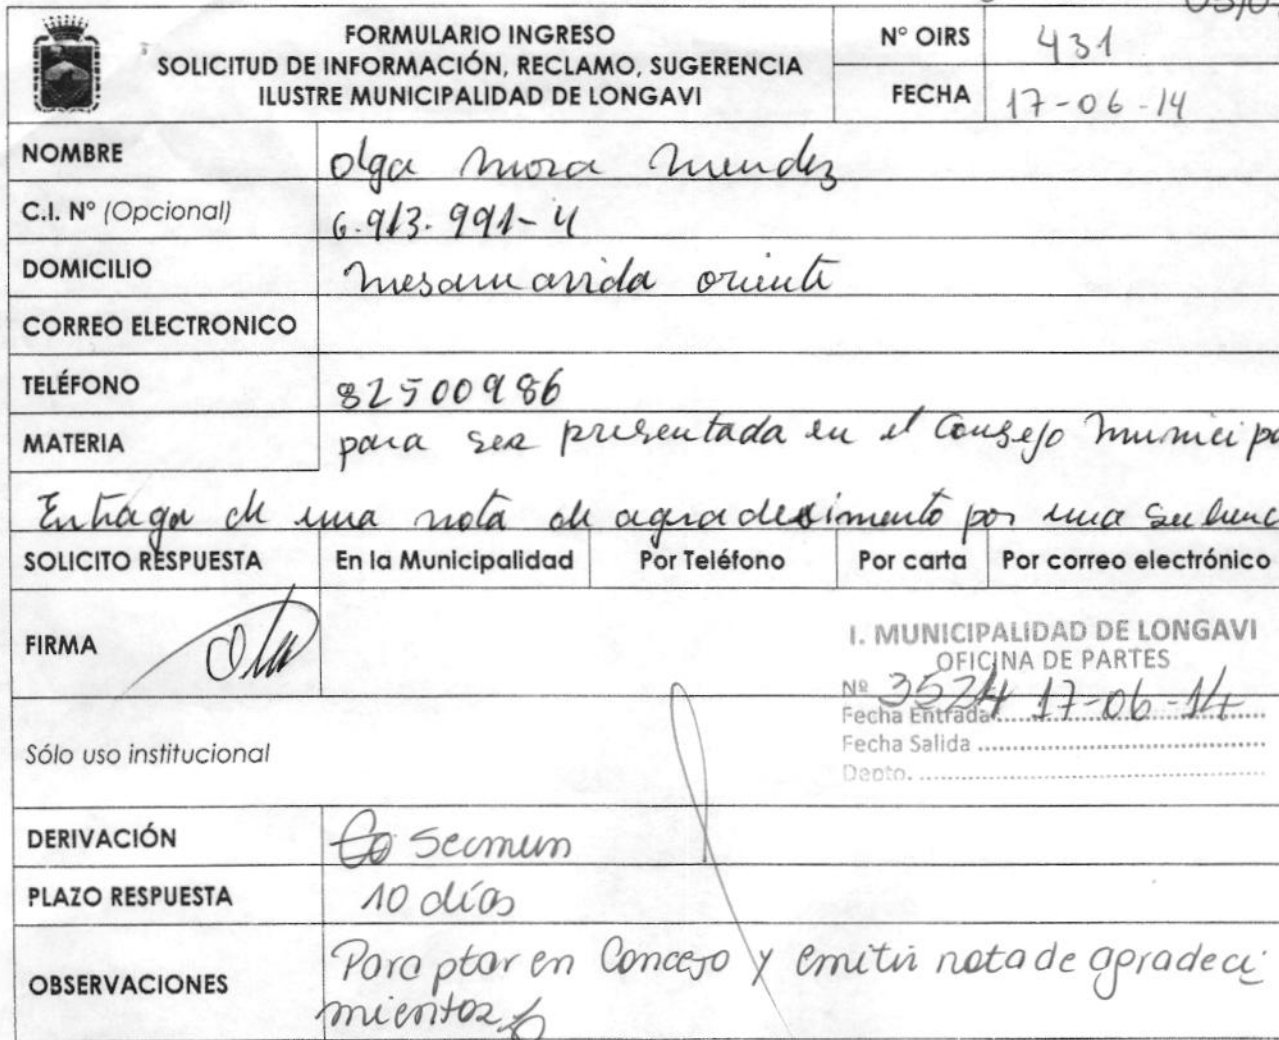 FORMULARIO INGRESO
SOLICITUD DE INFORMACIÓN, RECLAMO, SUGERENCIA
ILUSTRE MUNICIPALIDAD DE LONGAVI
N° OIRS 431
FECHA 17-06-14
NOMBRE olga mora mendez
C.I. N° (Opcional) 6.913.991-4
DOMICILIO mesamavida oriente
CORREO ELECTRONICO
TELÉFONO 82500986
MATERIA para ser presentada en el Consejo municipa
Entraga de una nota de agradesimento por una
SOLICITO RESPUESTA En la Municipalidad Por Teléfono Por carta Por correo electrónico
FIRMA
I. MUNICIPALIDAD DE LONGAVI
OFICINA DE PARTES
Nº 3524 17-06-14
Fecha Entrada
Sólo uso institucional
Fecha Salida
Depto.
DERIVACIÓN Secmun
PLAZO RESPUESTA 10 días
OBSERVACIONES Para ptar en Concejo y emitir nota de agradeci
mientos